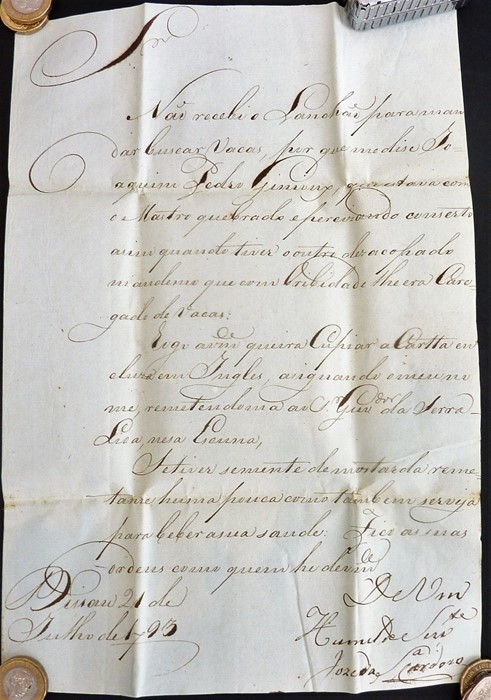 Snr
Não recebi o Lanchão para man
dar buscar Vacas, por que me dise Jo-
aquim Pedro que estava com
o Mastro quebrado e percizando conserto
asim quando tiver o outro dezacopado
mandemo que com brividade lhe era Care-
gado de Vacas:
Rogo a vm.ce queira Cupiar a Cartta en
cluza em Ingles, asignando o meu no
me, remetendoma ao Sr Guv.dor da Serra
Lioa, nesa Escuna,
Se tiver semente de mostarda reme
tame huma pouca como tãobem serveja
para beber a sua saude: Fico as suas
ordens como quem he de Vm.ce
Bissau 21 de
Julho de 1793
De Vm
Humilde Serv.te
Joze da S.a Cardozo